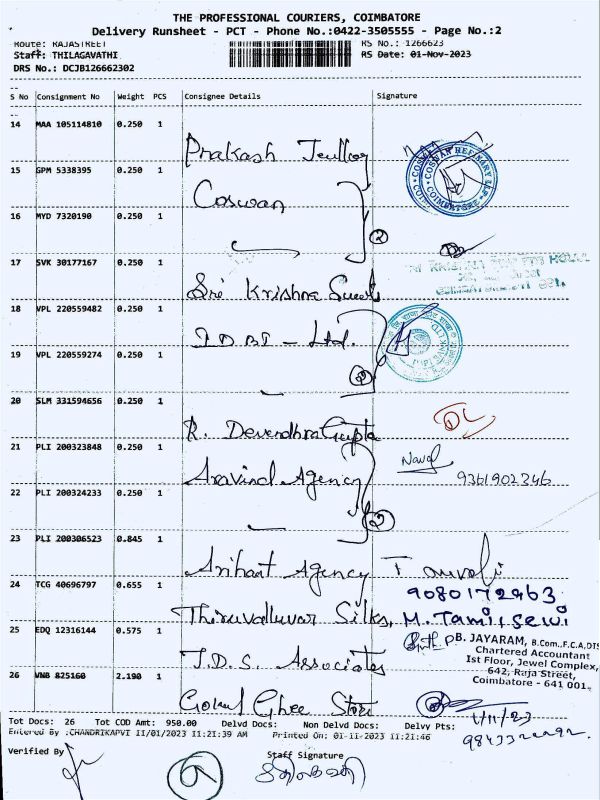 THE PROFESSIONAL COURIERS, COIMBATORE
Delivery Runsheet - PCT - Phone No.:0422-3505555 - Page No.:2
Route: RAJASTREET RS No.: 1266623
Staff: THILAGAVATHI RS Date: 01-Nov-2023
DRS No.: DCJB126662302
S No Consignment No Weight PCS Consignee Details Signature
14 MAA 105114810 0.250 1
Prakash
15 GPM 5338395 0.250 1
Coswan
COSWAN REFINERY LLP
COIMBATORE
16 MYD 7320190 0.250 1
2
17 SVK 30177167 0.250 1
Sri Krishna Sweets
18 VPL 220559482 0.250 1
I.D.B.I - Ltd.
19 VPL 220559274 0.250 1
2
20 SLM 331594656 0.250 1
R. Devendhra Gupta
21 PLI 200323848 0.250 1
Aravind Agency
9361902346
22 PLI 200324233 0.250 1
2
23 PLI 200306523 0.845 1
Arihant Agency
9080172963
24 TCG 40696797 0.655 1
Thiruvalluvar Silks, M. Tamilselvi
25 EDQ 12316144 0.575 1
P.B. JAYARAM, B.Com., F.C.A, DTS
Chartered Accountant
1st Floor, Jewel Complex,
642, Raja Street,
Coimbatore - 641 001.
T.D.S. Associates
26 VNB 825160 2.190 1
Gokul Ghee Store
1/11/23
Tot Docs: 26 Tot COD Amt: 950.00 Delvd Docs: Non Delvd Docs: Delvy Pts:
Entered By :CHANDRIKAPVI 11/01/2023 11:21:39 AM Printed On: 01-11-2023 11:21:46
Verified By Staff Signature